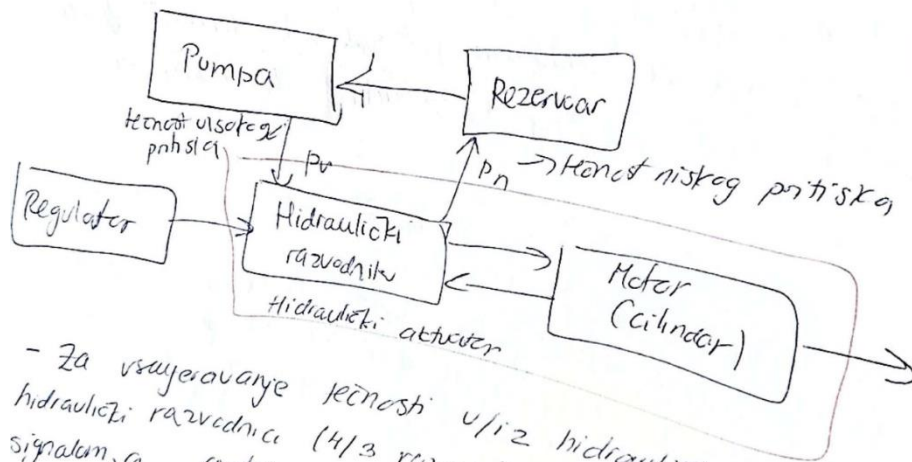 Pumpa
Rezervoar
tečnost visokog
pritiska
pv
pn → tečnost niskog pritiska
Regulator
Hidraulički
razvodnik
Motor
(cilindar)
Hidraulički aktuator
- Za usmjeravanje tečnosti u/iz
hidraulički razvodnici (4/3
signalom, a